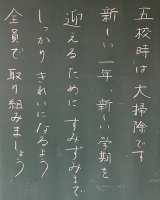 五校時は大掃除です
新しい一年、新しい学期を
迎えるためにすみずみまで
しっかりきれいになるよう
全員で取り組みましょう